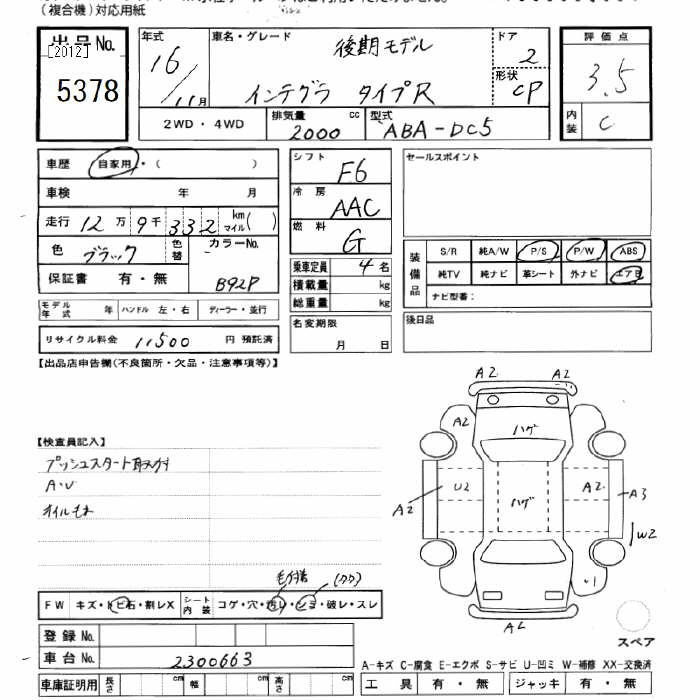 (複合機)対応用紙
出品No.
[2012]
5378
年式
16/11月
車名・グレード
後期モデル
インテグラ タイプR
ドア
2
形状
CP
評価点
3.5
内装
C
2WD・4WD
排気量
2000 cc
型式
ABA-DC5
車歴 自家用・( )
車検 年 月
走行 12万9千332 km マイル( )
色 ブラック
色替
カラーNo.
B92P
保証書 有・無
モデル年式 年
ハンドル 左・右
ディーラー・並行
リサイクル料金 11,500 円 預託済
シフト
F6
冷房
AAC
燃料
G
乗車定員 4名
積載量 kg
総重量 kg
名変期限
月 日
セールスポイント
装備品
S/R 純A/W P/S P/W ABS
純TV 純ナビ 革シート 外ナビ エアB
ナビ型番:
後日品
【出品店申告欄(不良箇所・欠品・注意事項等)】
【検査員記入】
プッシュスタート取付
A・V
A2 A2
A2 ハゲ
U2 ハゲ A2
A2 A3
W2
A2
FW キズ・トビ石・割レX
シート内装 コゲ・穴・汚レ・シミ・破レ・スレ
登録No.
車台No. 2300663
車庫証明用 長さ cm 幅 cm 高さ cm
スペア
A-キズ C-腐食 E-エクボ S-サビ U-凹ミ W-補修 XX-交換済
工具 有・無 ジャッキ 有・無